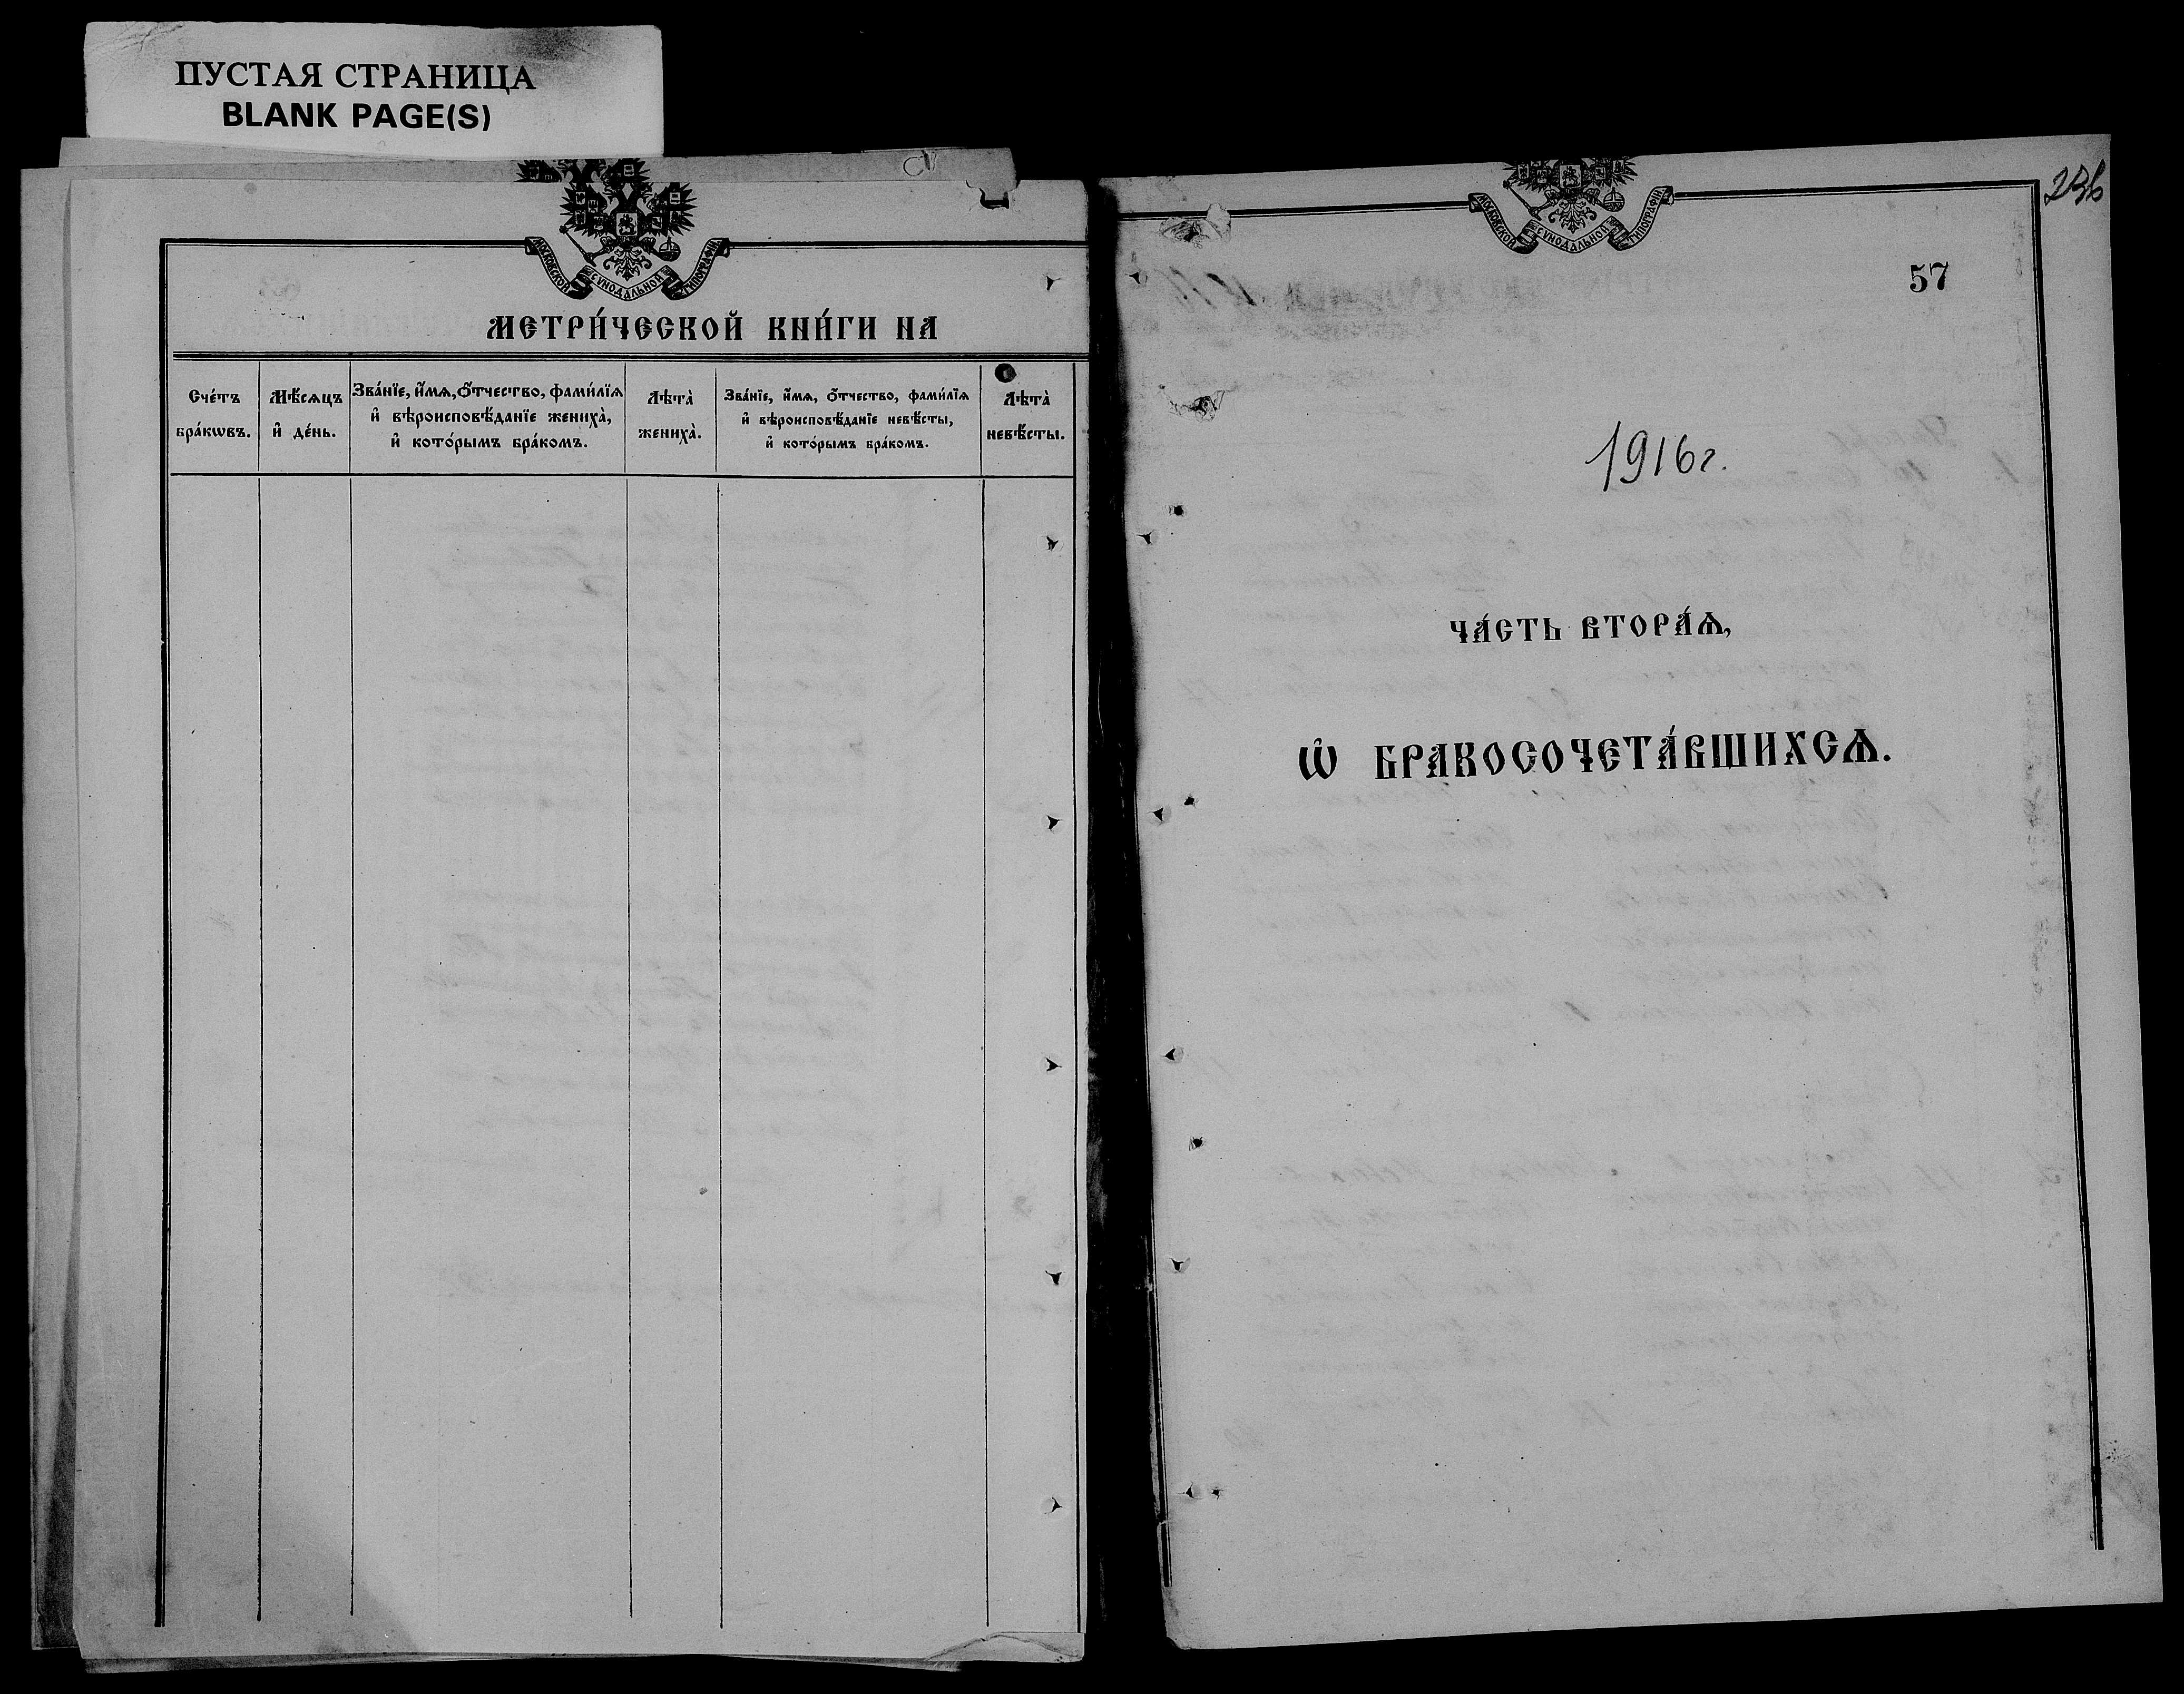 ПУСТАЯ СТРАНИЦА
BLANK PAGE(S)
МОСКОВСКОЙ СѴНОДАЛЬНОЙ ТИПОГРАФІИ
МЕТРИ́ЧЕСКОЙ КНИ́ГИ НА
Сче́тъ бра́кѡвъ.
Мѣ́сѧцъ и҆ де́нь.
Зва́нїе, и҆́мѧ, ѻ҆́тчество, фами́лїѧ
и҆ вѣроисповѣ́данїе жениха̀,
и҆ кото́рымъ бра́комъ.
Лѣта̀ жениха̀.
Зва́нїе, и҆́мѧ, ѻ҆́тчество, фами́лїѧ
и҆ вѣроисповѣ́данїе невѣ́сты,
и҆ кото́рымъ бра́комъ.
Лѣта̀ невѣ́сты.
МОСКОВСКОЙ СѴНОДАЛЬНОЙ ТИПОГРАФІИ
236
57
1916 г.
ЧА́СТЬ ВТОРА́Ѧ,
Ѡ҆ БРАКОСОЧЕТА́ВШИХСѦ.